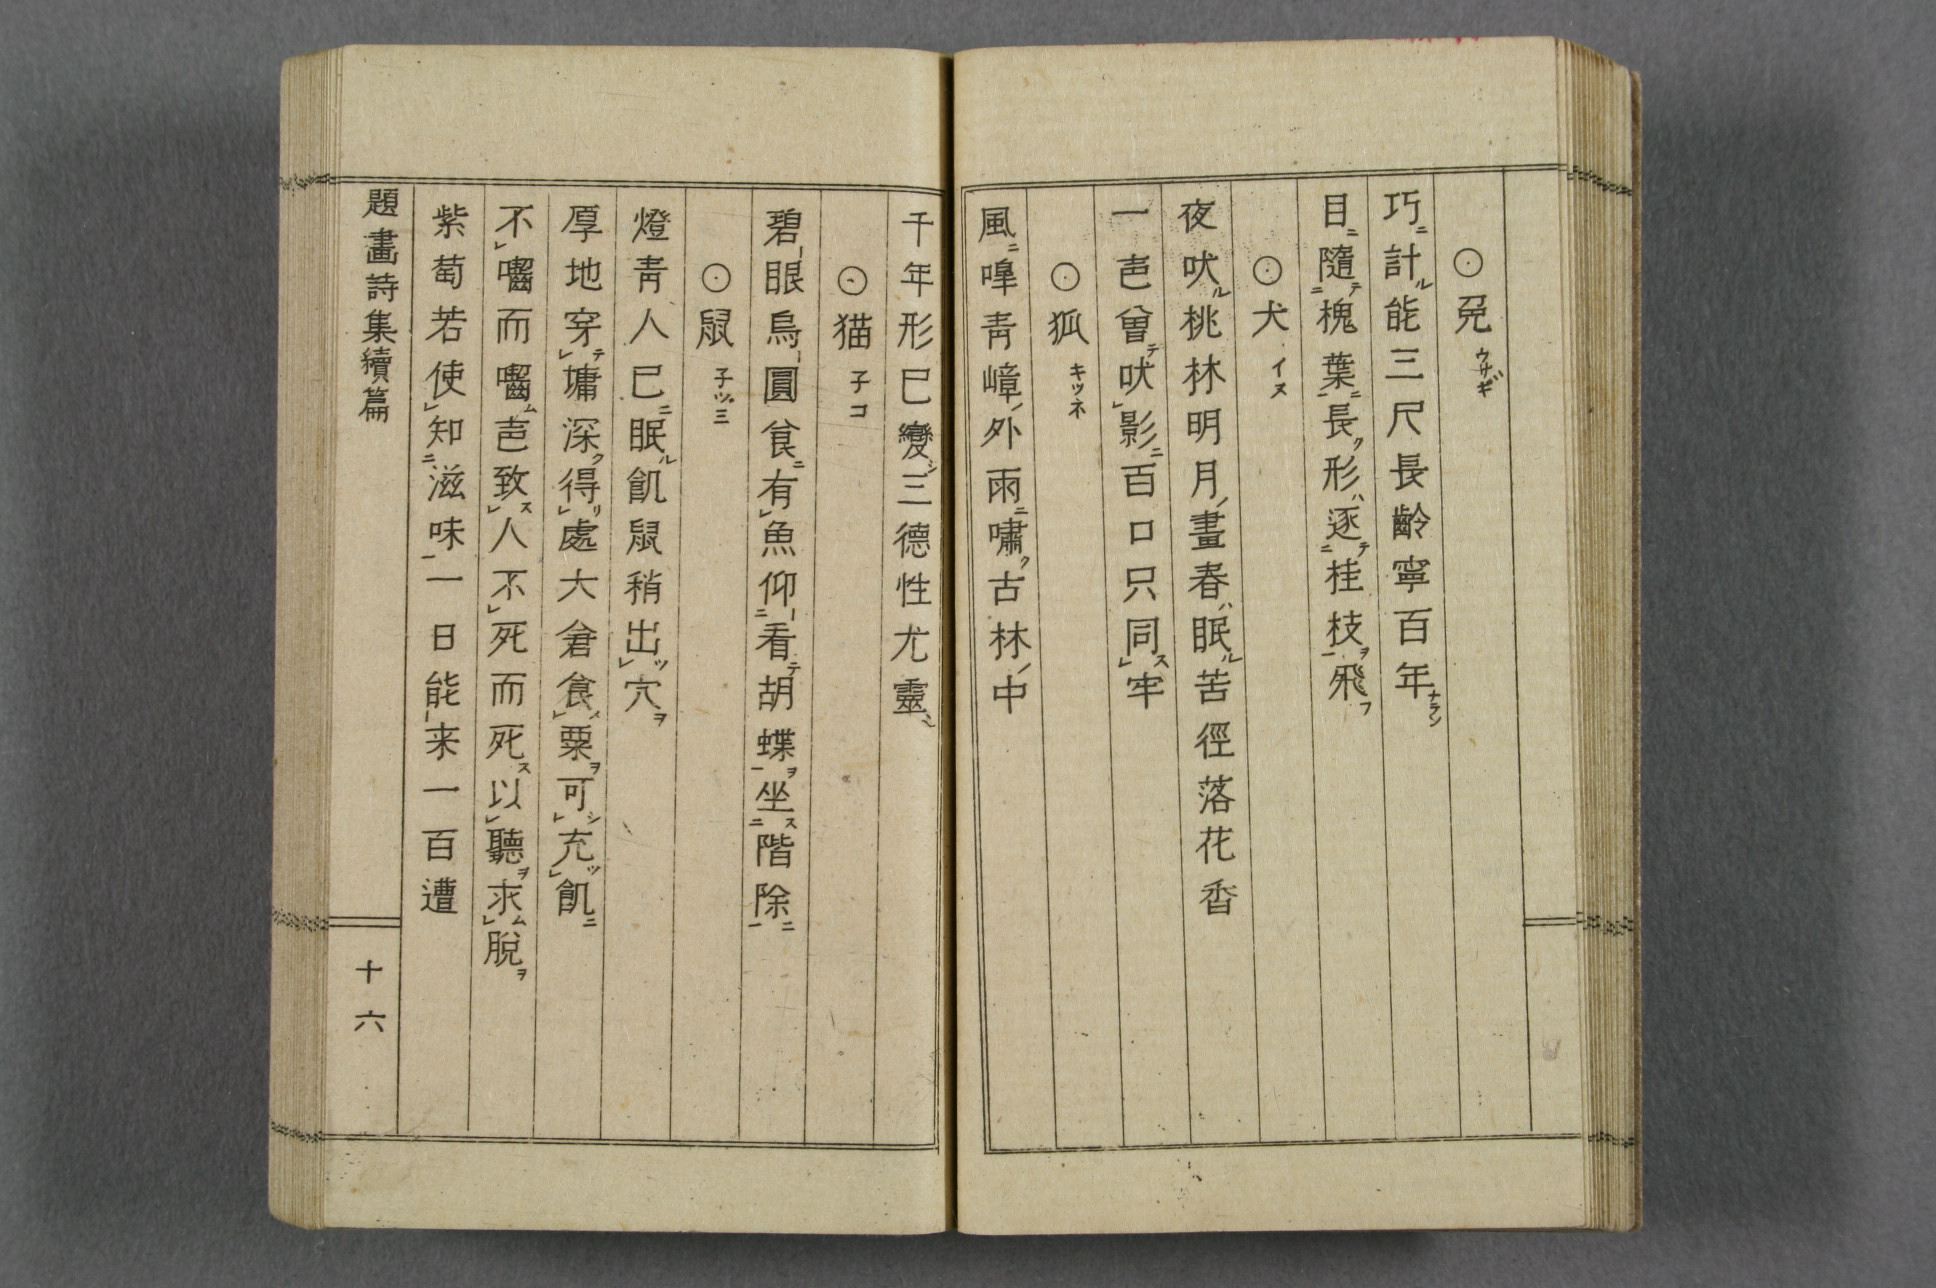 ⊙兎 ウサギ
巧計能三尺長齡寧百年
目隨槐葉長形逐桂枝飛
⊙犬 イヌ
夜吠桃林明月晝春眠苦徑落花香
一声曾吠影百口只同牢
⊙狐 キツネ
風嘷青嶂外雨嘯古林中
千年形已變三德性尤靈
⊙猫 子コ
碧眼烏圓食有魚仰看胡蝶坐階除
⊙鼠 子ツミ
燈青人已眠飢鼠稍出穴
厚地穿墉深得處大倉食粟可充飢
不嚙而嚙声致人不死而死以聽求脫
紫萄若使知滋味一日能来一百遭
題畵詩集續篇
十六